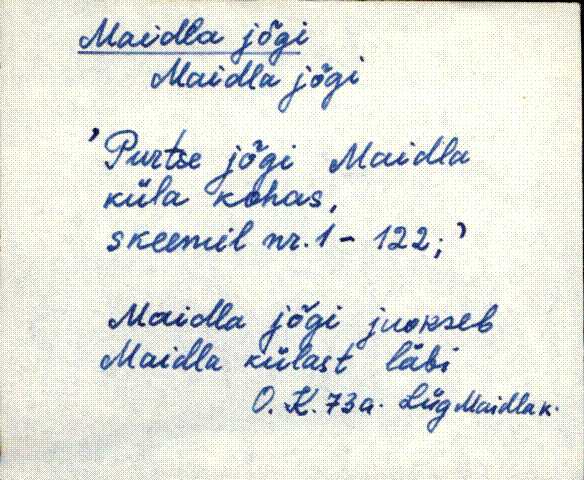 Maidla jõgi
Maidla jõgi
'Purtse jõgi Maidla
küla kohas,
skeemil nr. 1 - 122;'
Maidla jõgi juokseb
Maidla külast läbi
O. K. 73 a. Lüg Maidla k.